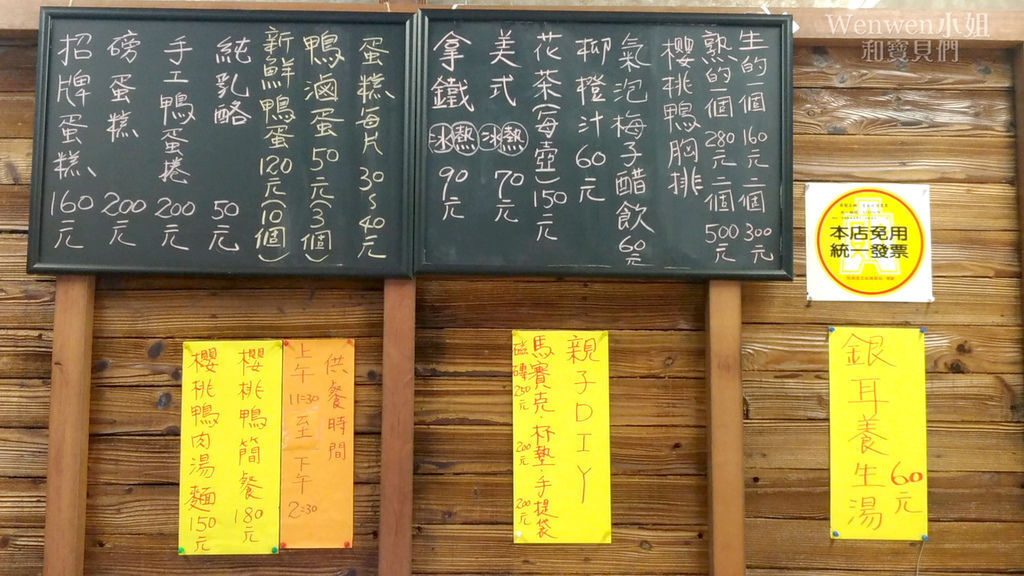 Wenwen小姐
和寶貝們
生的一個160元二個300元
熟的一個280元二個500元
櫻桃鴨胸排
氣泡梅子醋飲60元
柳橙汁60元
花茶(每壺)150元
美式冰熱70元
拿鐵冰熱90元
蛋糕每片30~40元
鴨滷蛋50元(3個)
新鮮鴨蛋120元(10個)
純乳酪50元
手工鴨蛋捲200元
磅蛋糕200元
招牌蛋糕160元
本店免用
統一發票
銀耳養生湯
60元
親子DIY
馬賽克·杯墊·手提袋
磁磚250元 200元 200元
供餐時間
上午11:30至下午2:30
櫻桃鴨簡餐180元
櫻桃鴨肉湯麵150元